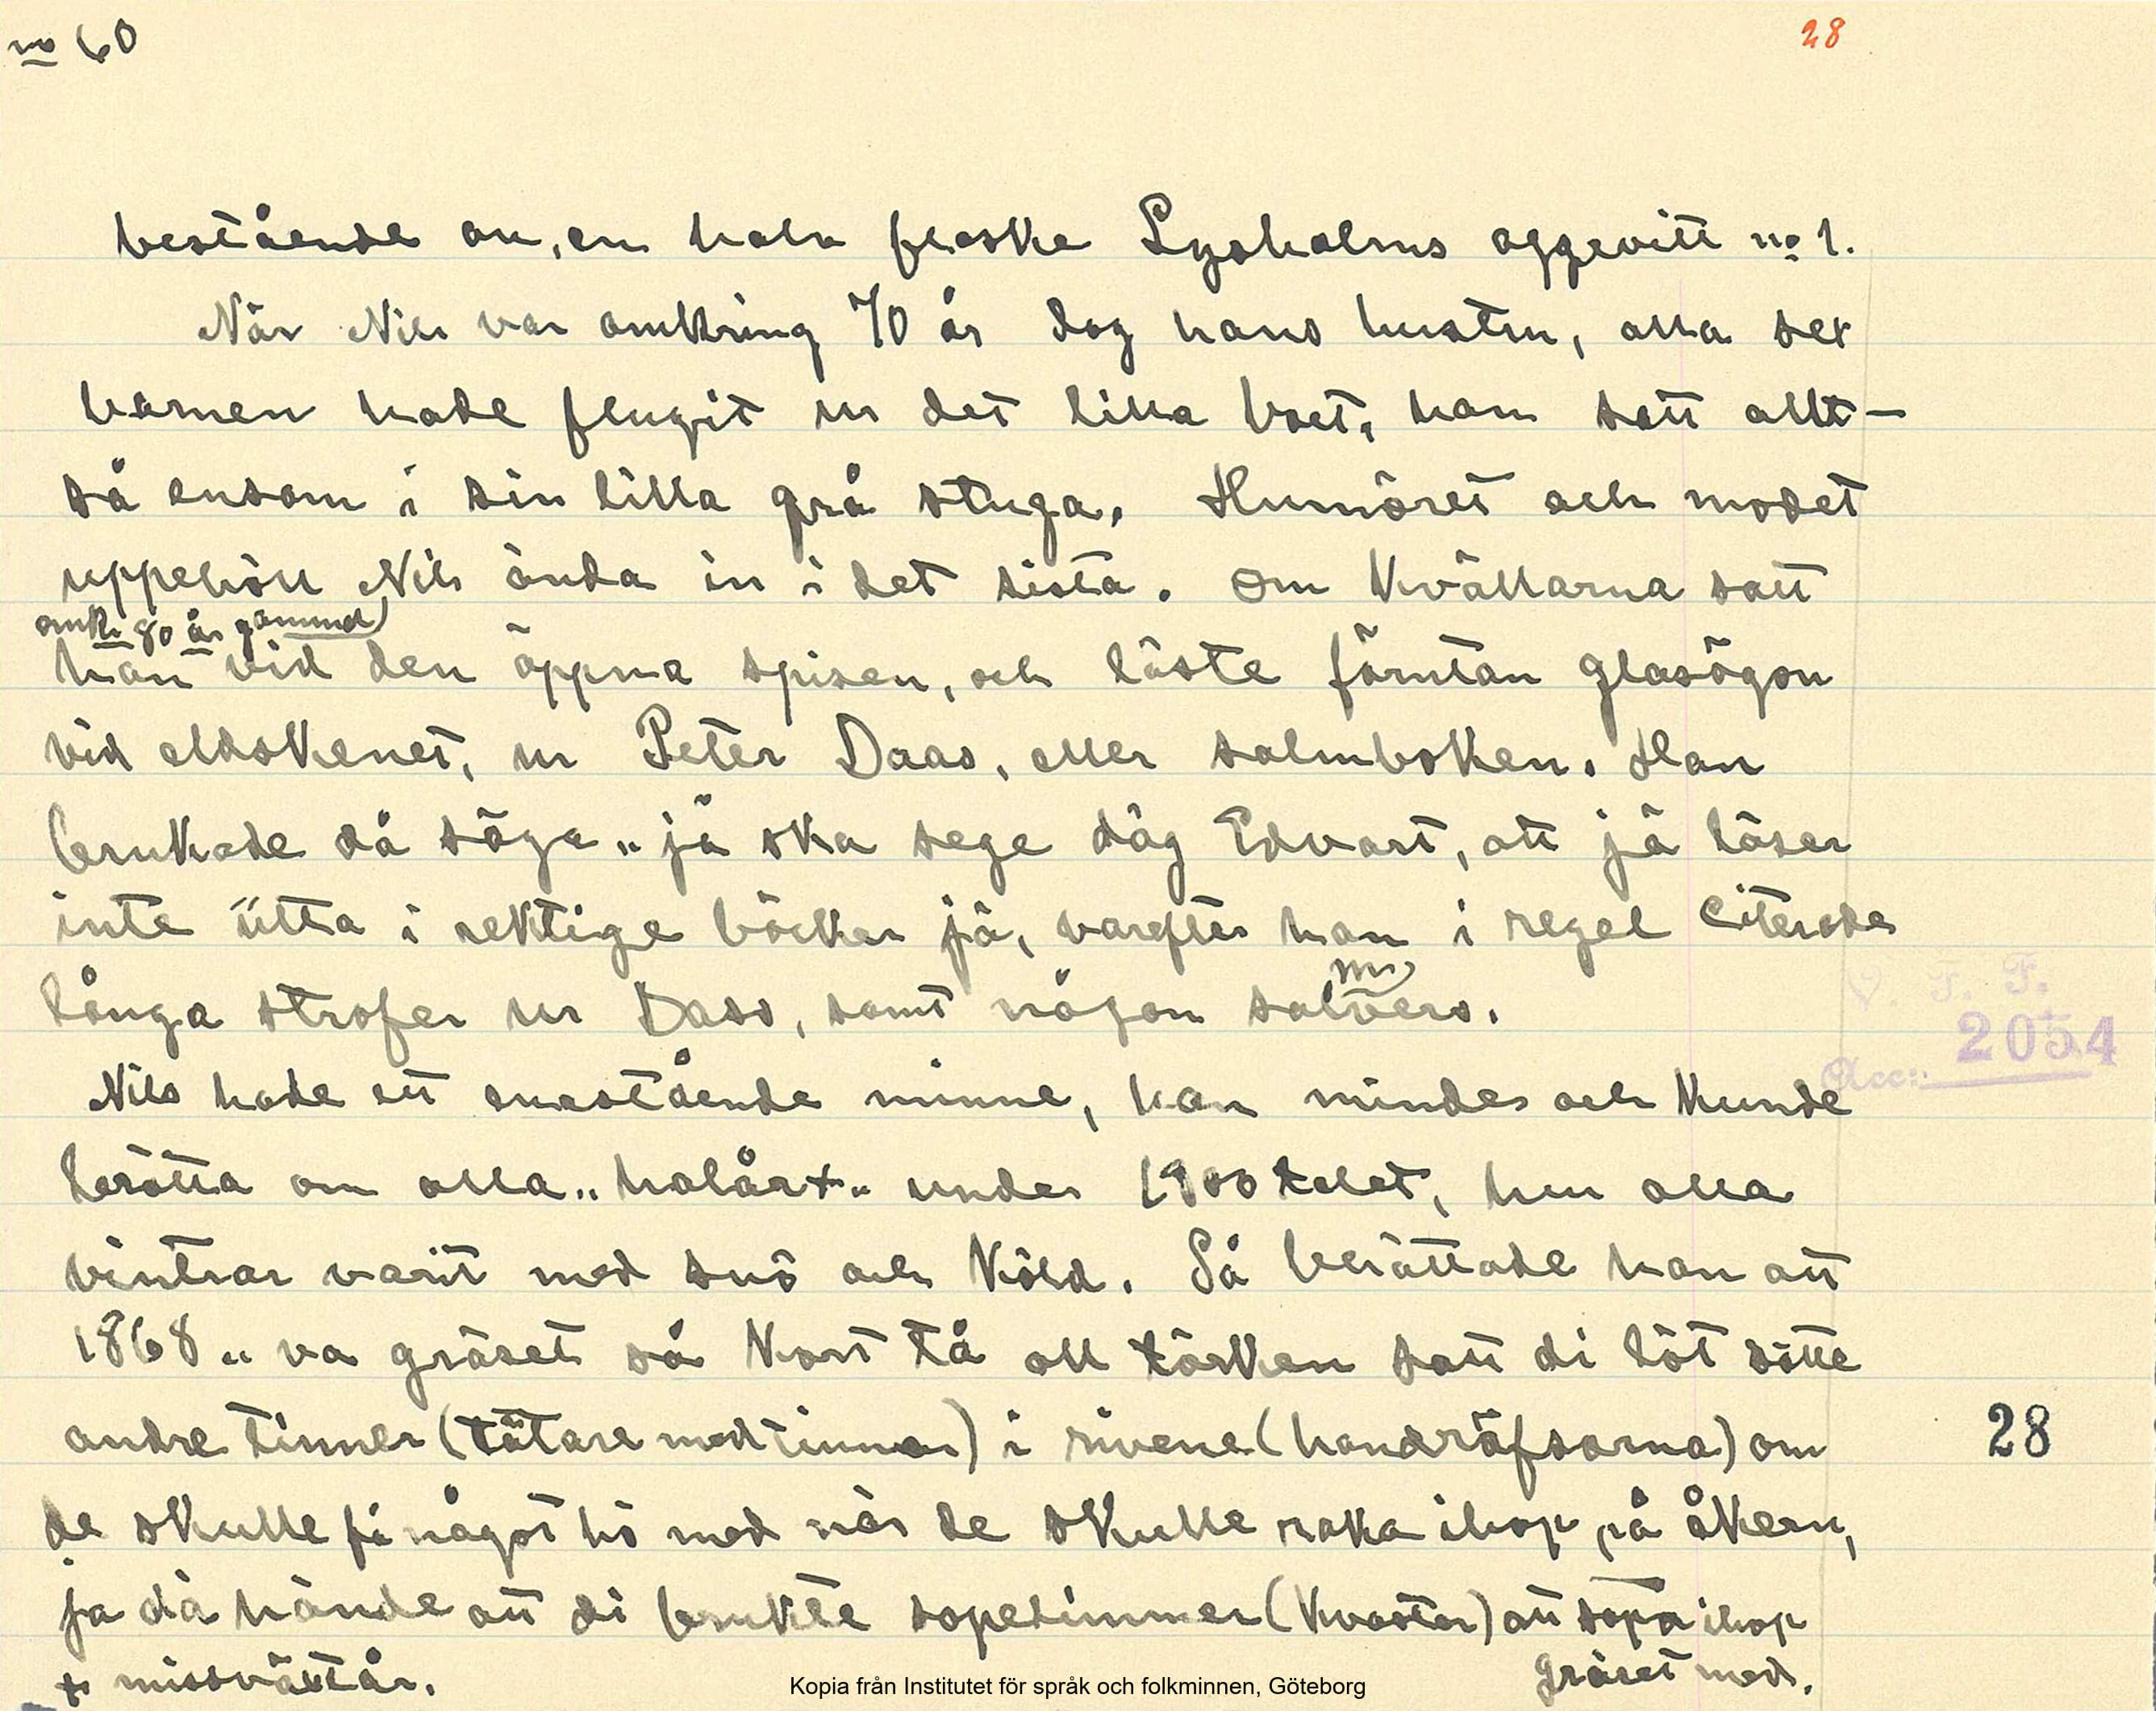 no 60
28
bestående av, en halv flaske Lysholms aqqevitt no 1.
När Nils var omkring 70 år dog hans hustru, alla sex
barnen hade flugit ur det lilla boet, han satt allt-
så ensam i sin lilla grå stuga. Humöret och modet
uppehöll Nils ända in i det sista. Om kvällarna satt
omkr. 80 år gammal)
han vid den öppna spisen, och läste förutan glasögon
vid eldskenet, ur Peter Daas, eller salmboken. Han
brukade då säga „jä ska sege däg Edvart, att jä läser
inte ütta i rektige böcker jä, varefter han i regel citerade
långa strofer ur Dass, samt någon salmvers.
Nils hade ett enestående minne, han mindes och kunde
berätta om alla „halår+„ under 1900 talet, hur alla
vintrar varit med snö och köld. Så berättade han att
1868 „ va gräset så kort tå all törken satt di löt sätte
andre tinner (tätare med tinnar) i rivene (handräfsorna) om
de skulle få något hö med när de skulle raka ihop på åkern,
ja dä hände att di brukte sopelimmer (kvastar) att sopa ihop
gräset med.
+ missväxtår.
V. F. F.
Acc: 2054
28
Kopia från Institutet för språk och folkminnen, Göteborg